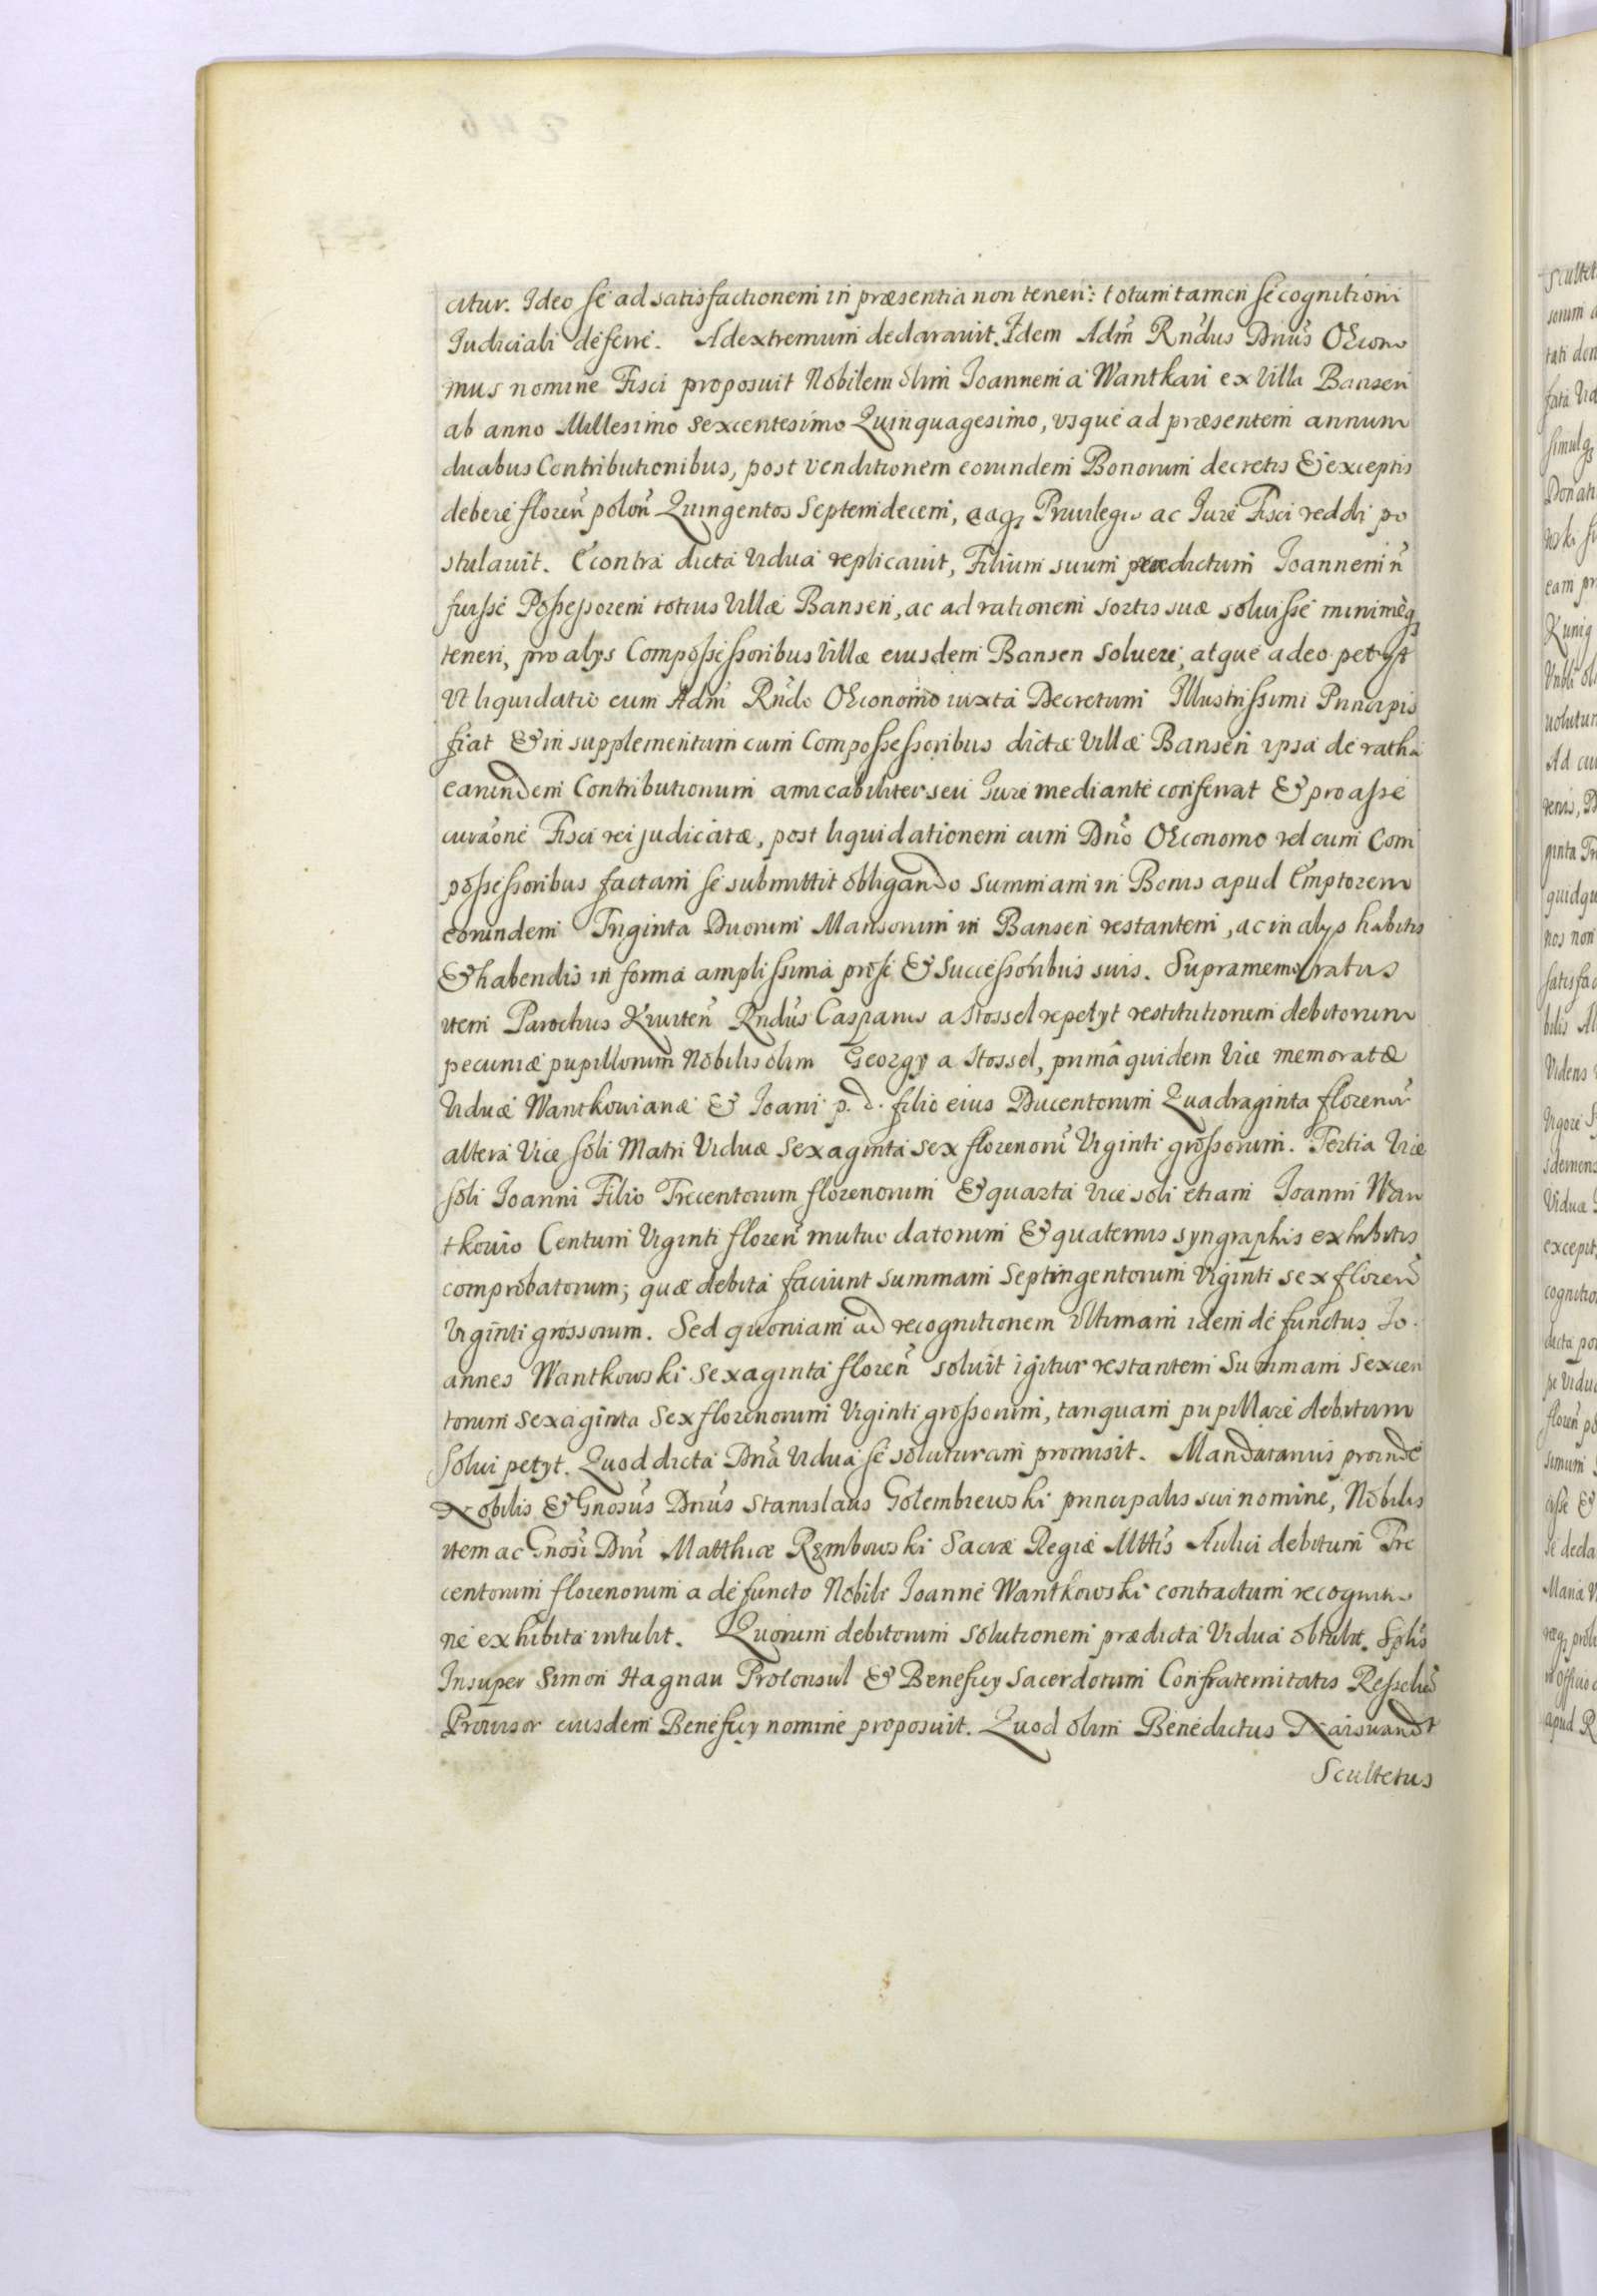 citur. Ideo se ad satisfactionem in præsentia non teneri: totum tamen se cognitioni
Iudiciali deferre. Ad extremum declaravit. Idem Adm̃ Rñdus Dñus Œcono
mus nomine Fisci proposuit Nobilem olim Joannem a Wantkau ex Villa Bansen
ab anno Millesimo Sexcentesimo Quinquagesimo, usque ad præsentem annum
duabus Contributionibus, post venditionem eorundem Bonorum decretis & exceptis
debere floreñ poloñ Quingentos Septemdecem, eaq₃ Privilegio ac Jure Fisci reddi po
stulavit. E contra dicta Vidua replicavit, Filium suum prædictum Joannem ñ
fuisse Possessorem totius Villæ Bansen, ac ad rationem sortis suæ soluisse minimeq₃
teneri, pro alys Compossessoribus Villæ eiusdem Bansen soluere, atque adeo petyt
Vt liquidatio cum Adm̃ Rñdo Œconomo iuxta Decretum Illustrissimi Principis
fiat & in supplementum cum Compossessoribus dictæ Villæ Bansen ipsa de ratha
earundem Contributionum amicabiliter seu Jure mediante conferrat & pro asse
curãone Fisci rei judicatæ, post liquidationem cum Dño Œconomo vel cum Com
possessoribus factam se submittit obligando Summam in Bonis apud Emptorem
eorundem Triginta Duorum Mansorum in Bansen restantem, ac in alys habitis
& habendis in forma amplissima pro se & Successoribus suis. Supramemoratus
item Parochus Kiwiteñ Rñdus Casparus a Stossel repetyt restitutionem debitorum
pecuniæ pupillorum Nobilis olim Georgy a Stossel, primâ quidem Vice memoratæ
Viduæ Wantkovianæ & Joani p. d. filio eius Ducentorum Quadraginta florenor̃
altera Vice soli Matri Viduæ Sexaginta sex florenorũ Viginti grossorum. Tertia Vice
soli Joanni Filio Trecentorum florenorum & quarta Vice soli etiam Joanni Wan
tkovio Centum Viginti floreñ mutuo datorum & quaternis syngraphis exhibitis
comprobatorum; quæ debita faciunt summam Septingentorum Viginti sex floreñ
Viginti grossorum. Sed quoniam ad recognitionem Vltimam idem defunctus Jo
annes Wantkowski Sexaginta floreñ soluit igitur restantem Summam Sexcen
torum Sexaginta Sex florenorum Viginti grossorum, tanquam pupillare debitum
Solui petyt. Quod dicta Dña Vidua se soluturam promisit. Mandatarius proinde
Nobilis & Gnosus Dñus Stanislaus Golembiewski principalis sui nomine, Nobilis
item ac Gnosi Dñi Matthiæ Rembowski Sacræ Regiæ Mttis Aulici debitum Tre
centorum florenorum a defuncto Nobili Joanne Wantkowski contractum recognitio
ne exhibita intulit. Quorum debitorum Solutionem prædicta Vidua obtulit. Splis
Insuper Simon Hagnau Proconsul & Beneficy Sacerdotum Confraternitatis Resseliens̃
Provisor eiusdem Beneficy nomine proposuit. Quod olim Benedictus Narswandt
Scultetus